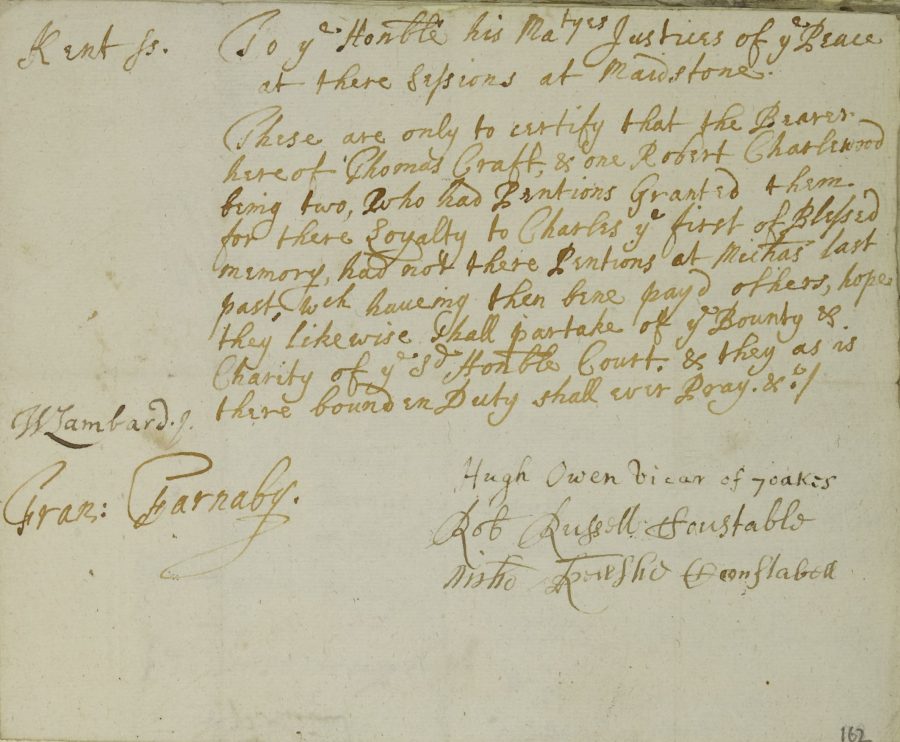 Kent ss. To ye Honble his Matyes Justices of ye Peace
at there Sessions at Maidstone.
These are only to certify that the Bearer
hereof Thomas Craft, & one Robert Charlewood
being two, Who had Pentions Granted them
for there Loyalty to Charles ye first of Blessed
memory, had not there Pentions at Michas last
past, wch haueing then bene payd others, hope
they likewise shall partake of ye Bounty &
Charity of ye sd Honble Court. & they as is
there bounden Duty shall ever Pray. &c/
W Lambard.
Fran: Farnaby.
Hugh Owen Vicar of
Rob Russell Constable
Constabell
162